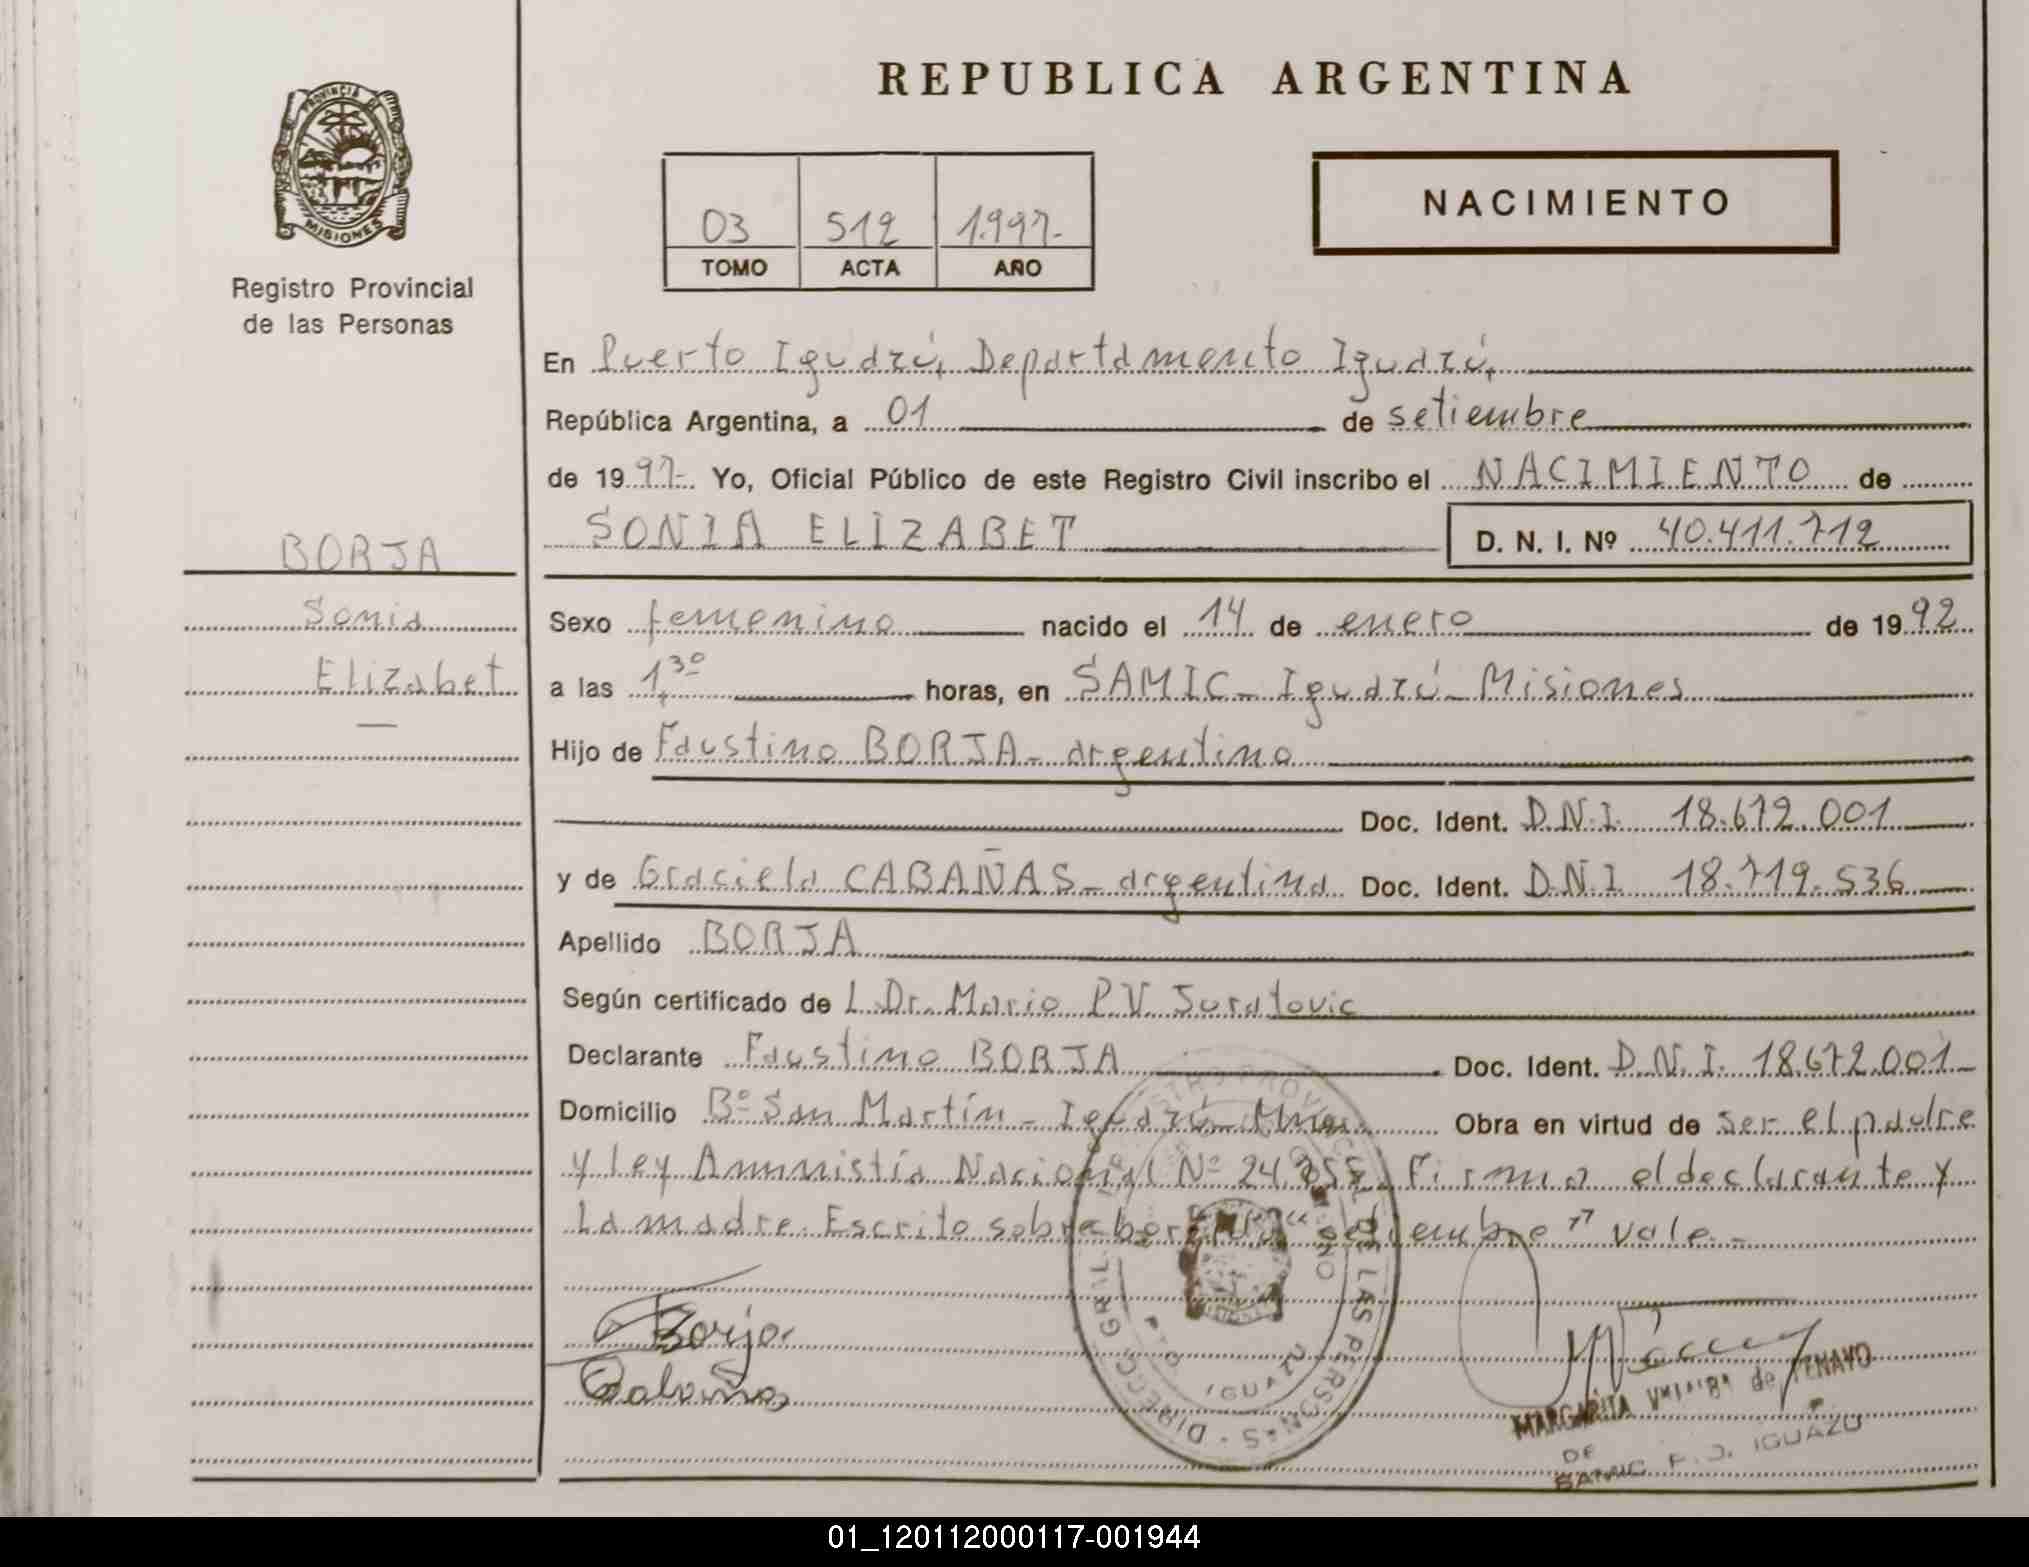 REPUBLICA ARGENTINA
PROVINCIA DE
MISIONES
Registro Provincial
de las Personas
03 512 1.997-
TOMO ACTA AÑO
NACIMIENTO
En Puerto Iguazú, Departamento Iguazú,
República Argentina, a 01 de setiembre
de 1997- Yo, Oficial Público de este Registro Civil inscribo el NACIMIENTO de
SONIA ELIZABET D. N. I. Nº 40.411.712
BORJA
Sonia
Elizabet
Sexo femenino nacido el 14 de enero de 1992
a las 1,30 horas, en SAMIC- Iguazú- Misiones
Hijo de Faustino BORJA- argentino
Doc. Ident. D.N.I. 18.672.001
y de Graciela CABAÑAS- argentina Doc. Ident. D.N.I. 18.719.536
Apellido BORJA
Según certificado de L. Dr. Mario P.V. Juratovic
Declarante Faustino BORJA Doc. Ident. D.N.I. 18.672.001
Domicilio Bº San Martín - Iguazú- Mnes. Obra en virtud de ser el padre
y Ley Amnistía Nacional Nº 24. Firma el declarante y
la madre. Escrito sobre "setiembre" vale.-
Borja
Cabañas
DIRECC. GRAL. REGISTRO PROVINCIAL DE LAS PERSONAS
PTO IGUAZU
MARGARITA de TENAYO
DE
SAMIC P. IGUAZU
01_120112000117-001944